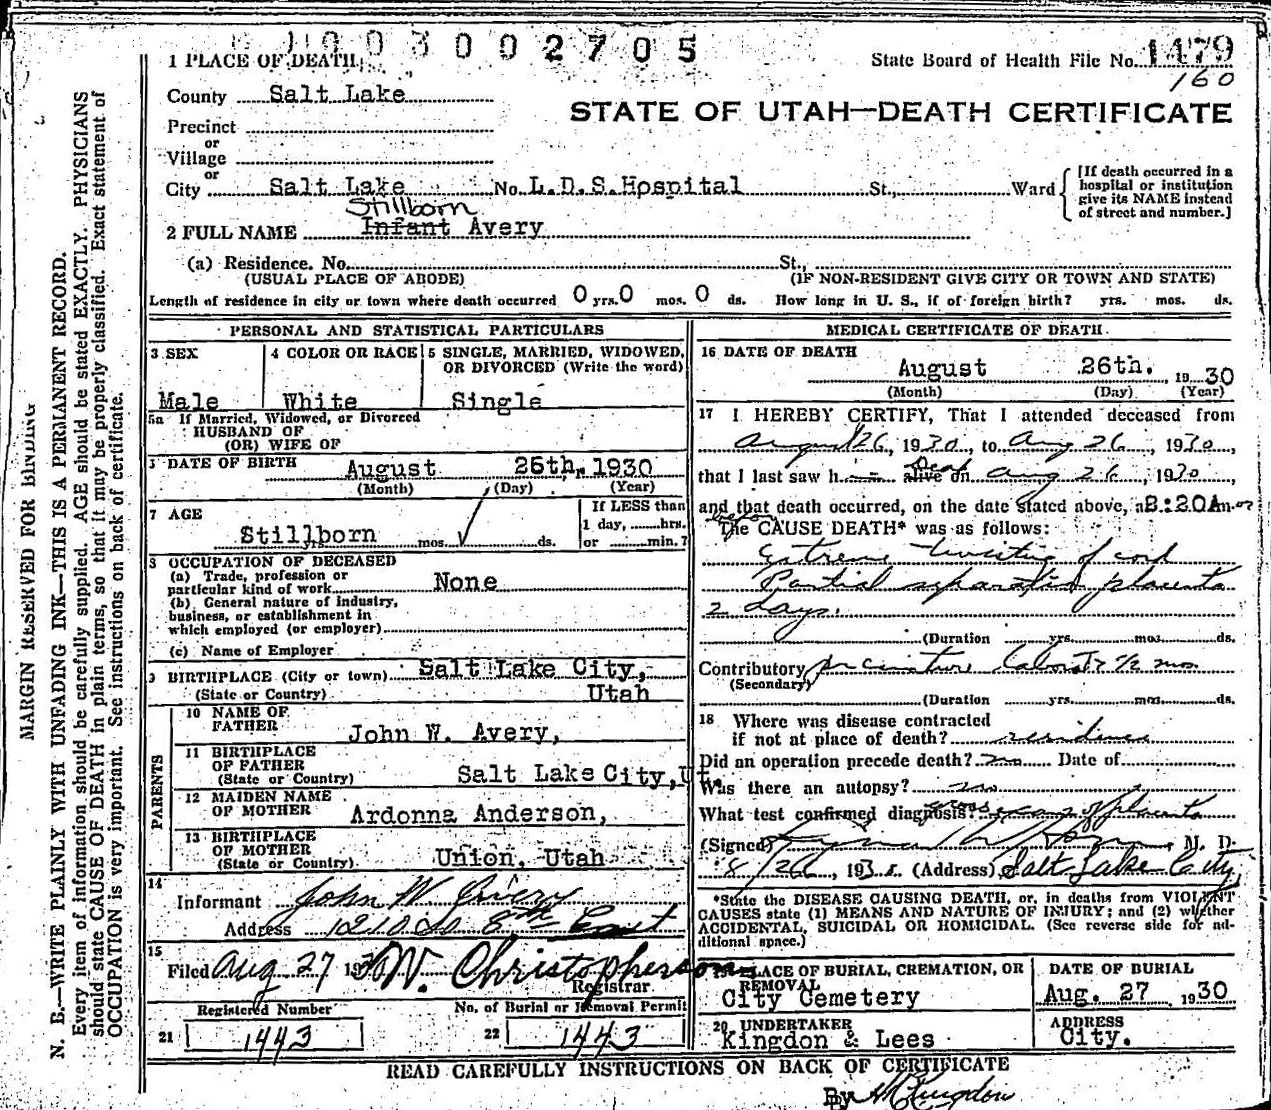 0 0 3 0 0 2 7 0 5
1 PLACE OF DEATH
State Board of Health File No. 1479
160
County Salt Lake
STATE OF UTAH—DEATH CERTIFICATE
Precinct
or
Village
or
City Salt Lake No. L.D.S. Hospital St., Ward
[If death occurred in a
hospital or institution
give its NAME instead
of street and number.]
Stillborn
2 FULL NAME Infant Avery
(a) Residence. No. St.,
(USUAL PLACE OF ABODE) (IF NON-RESIDENT GIVE CITY OR TOWN AND STATE)
Length of residence in city or town where death occurred 0 yrs. 0 mos. 0 ds. How long in U. S., if of foreign birth? yrs. mos. ds.
PERSONAL AND STATISTICAL PARTICULARS
3 SEX
Male
4 COLOR OR RACE
White
5 SINGLE, MARRIED, WIDOWED,
OR DIVORCED (Write the word)
Single
5a If Married, Widowed, or Divorced
HUSBAND OF
(OR) WIFE OF
DATE OF BIRTH August 26th, 1930
(Month) (Day) (Year)
7 AGE
Stillborn yrs. mos. ds.
If LESS than
1 day, hrs.
or min.?
8 OCCUPATION OF DECEASED
(a) Trade, profession or
particular kind of work None
(b) General nature of industry,
business, or establishment in
which employed (or employer)
(c) Name of Employer
9 BIRTHPLACE (City or town) Salt Lake City,
(State or Country) Utah
PARENTS
10 NAME OF
FATHER John W. Avery,
11 BIRTHPLACE
OF FATHER
(State or Country) Salt Lake City, Ut.
12 MAIDEN NAME
OF MOTHER Ardonna Anderson,
13 BIRTHPLACE
OF MOTHER
(State or Country) Union, Utah
14
Informant John W Avery
Address 1210 So 8th East
15
Filed Aug 27 1930 W. Christopherson
Registrar
Registered Number
21 1443
No. of Burial or Removal Permit
22 1443
MEDICAL CERTIFICATE OF DEATH
16 DATE OF DEATH
August 26th. 1930
(Month) (Day) (Year)
17 I HEREBY CERTIFY, That I attended deceased from
August 26, 1930, to Aug 26, 1930,
that I last saw h alive on Aug 26, 1930,
Dead
and that death occurred, on the date stated above, at 8:20A m.
before
The CAUSE DEATH* was as follows:
Extreme twisting of cord
Partial separation placenta
2 days.
(Duration yrs. mos. ds.
Contributory premature labor 7 1/2 mos
(Secondary)
(Duration yrs. mos. ds.
18 Where was disease contracted
if not at place of death? residence
Did an operation precede death? no Date of
Was there an autopsy? no
What test confirmed diagnosis? gross exam of placenta
(Signed) M. D.
8/26, 193 (Address) Salt Lake City
*State the DISEASE CAUSING DEATH, or, in deaths from VIOLENT
CAUSES state (1) MEANS AND NATURE OF INJURY; and (2) whether
ACCIDENTAL, SUICIDAL OR HOMICIDAL. (See reverse side for ad-
ditional space.)
19 PLACE OF BURIAL, CREMATION, OR
REMOVAL
City Cemetery
DATE OF BURIAL
Aug. 27 1930
20 UNDERTAKER
Kingdon & Lees
ADDRESS
City.
READ CAREFULLY INSTRUCTIONS ON BACK OF CERTIFICATE
By Kingdon
MARGIN RESERVED FOR BINDING
N. B.—WRITE PLAINLY WITH UNFADING INK—THIS IS A PERMANENT RECORD.
Every item of information should be carefully supplied. AGE should be stated EXACTLY. PHYSICIANS
should state CAUSE OF DEATH in plain terms, so that it may be properly classified. Exact statement of
OCCUPATION is very important. See instructions on back of certificate.